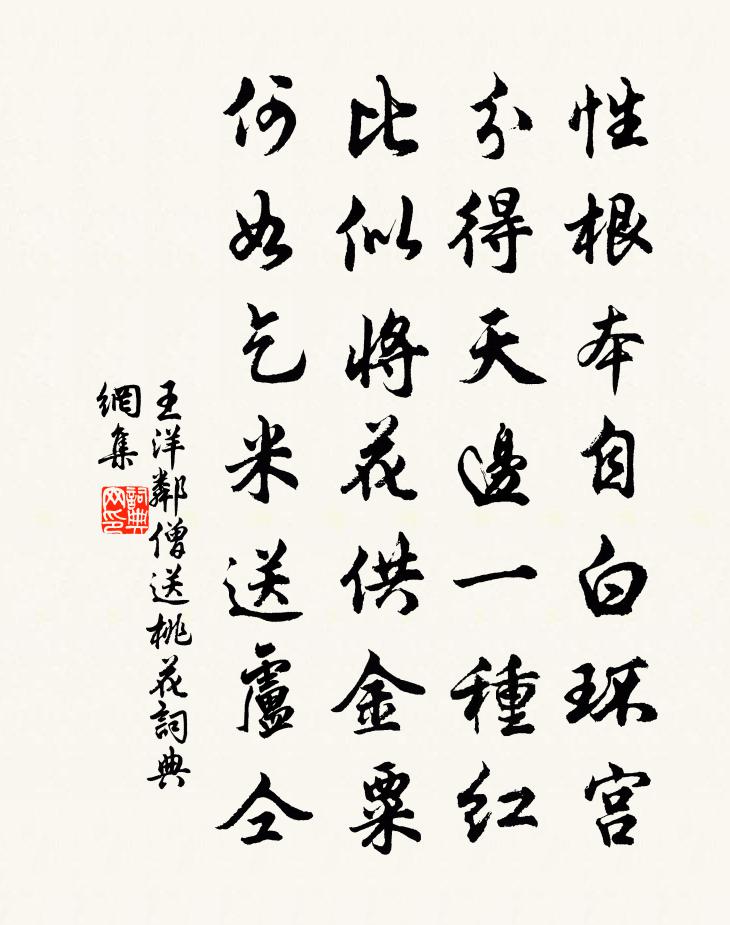 性根本自白环宫
分得天邊一種紅
比似将花供金粟
何如乞米送盧仝
王洋鄰僧送桃花詞典
網集
詞典
网印